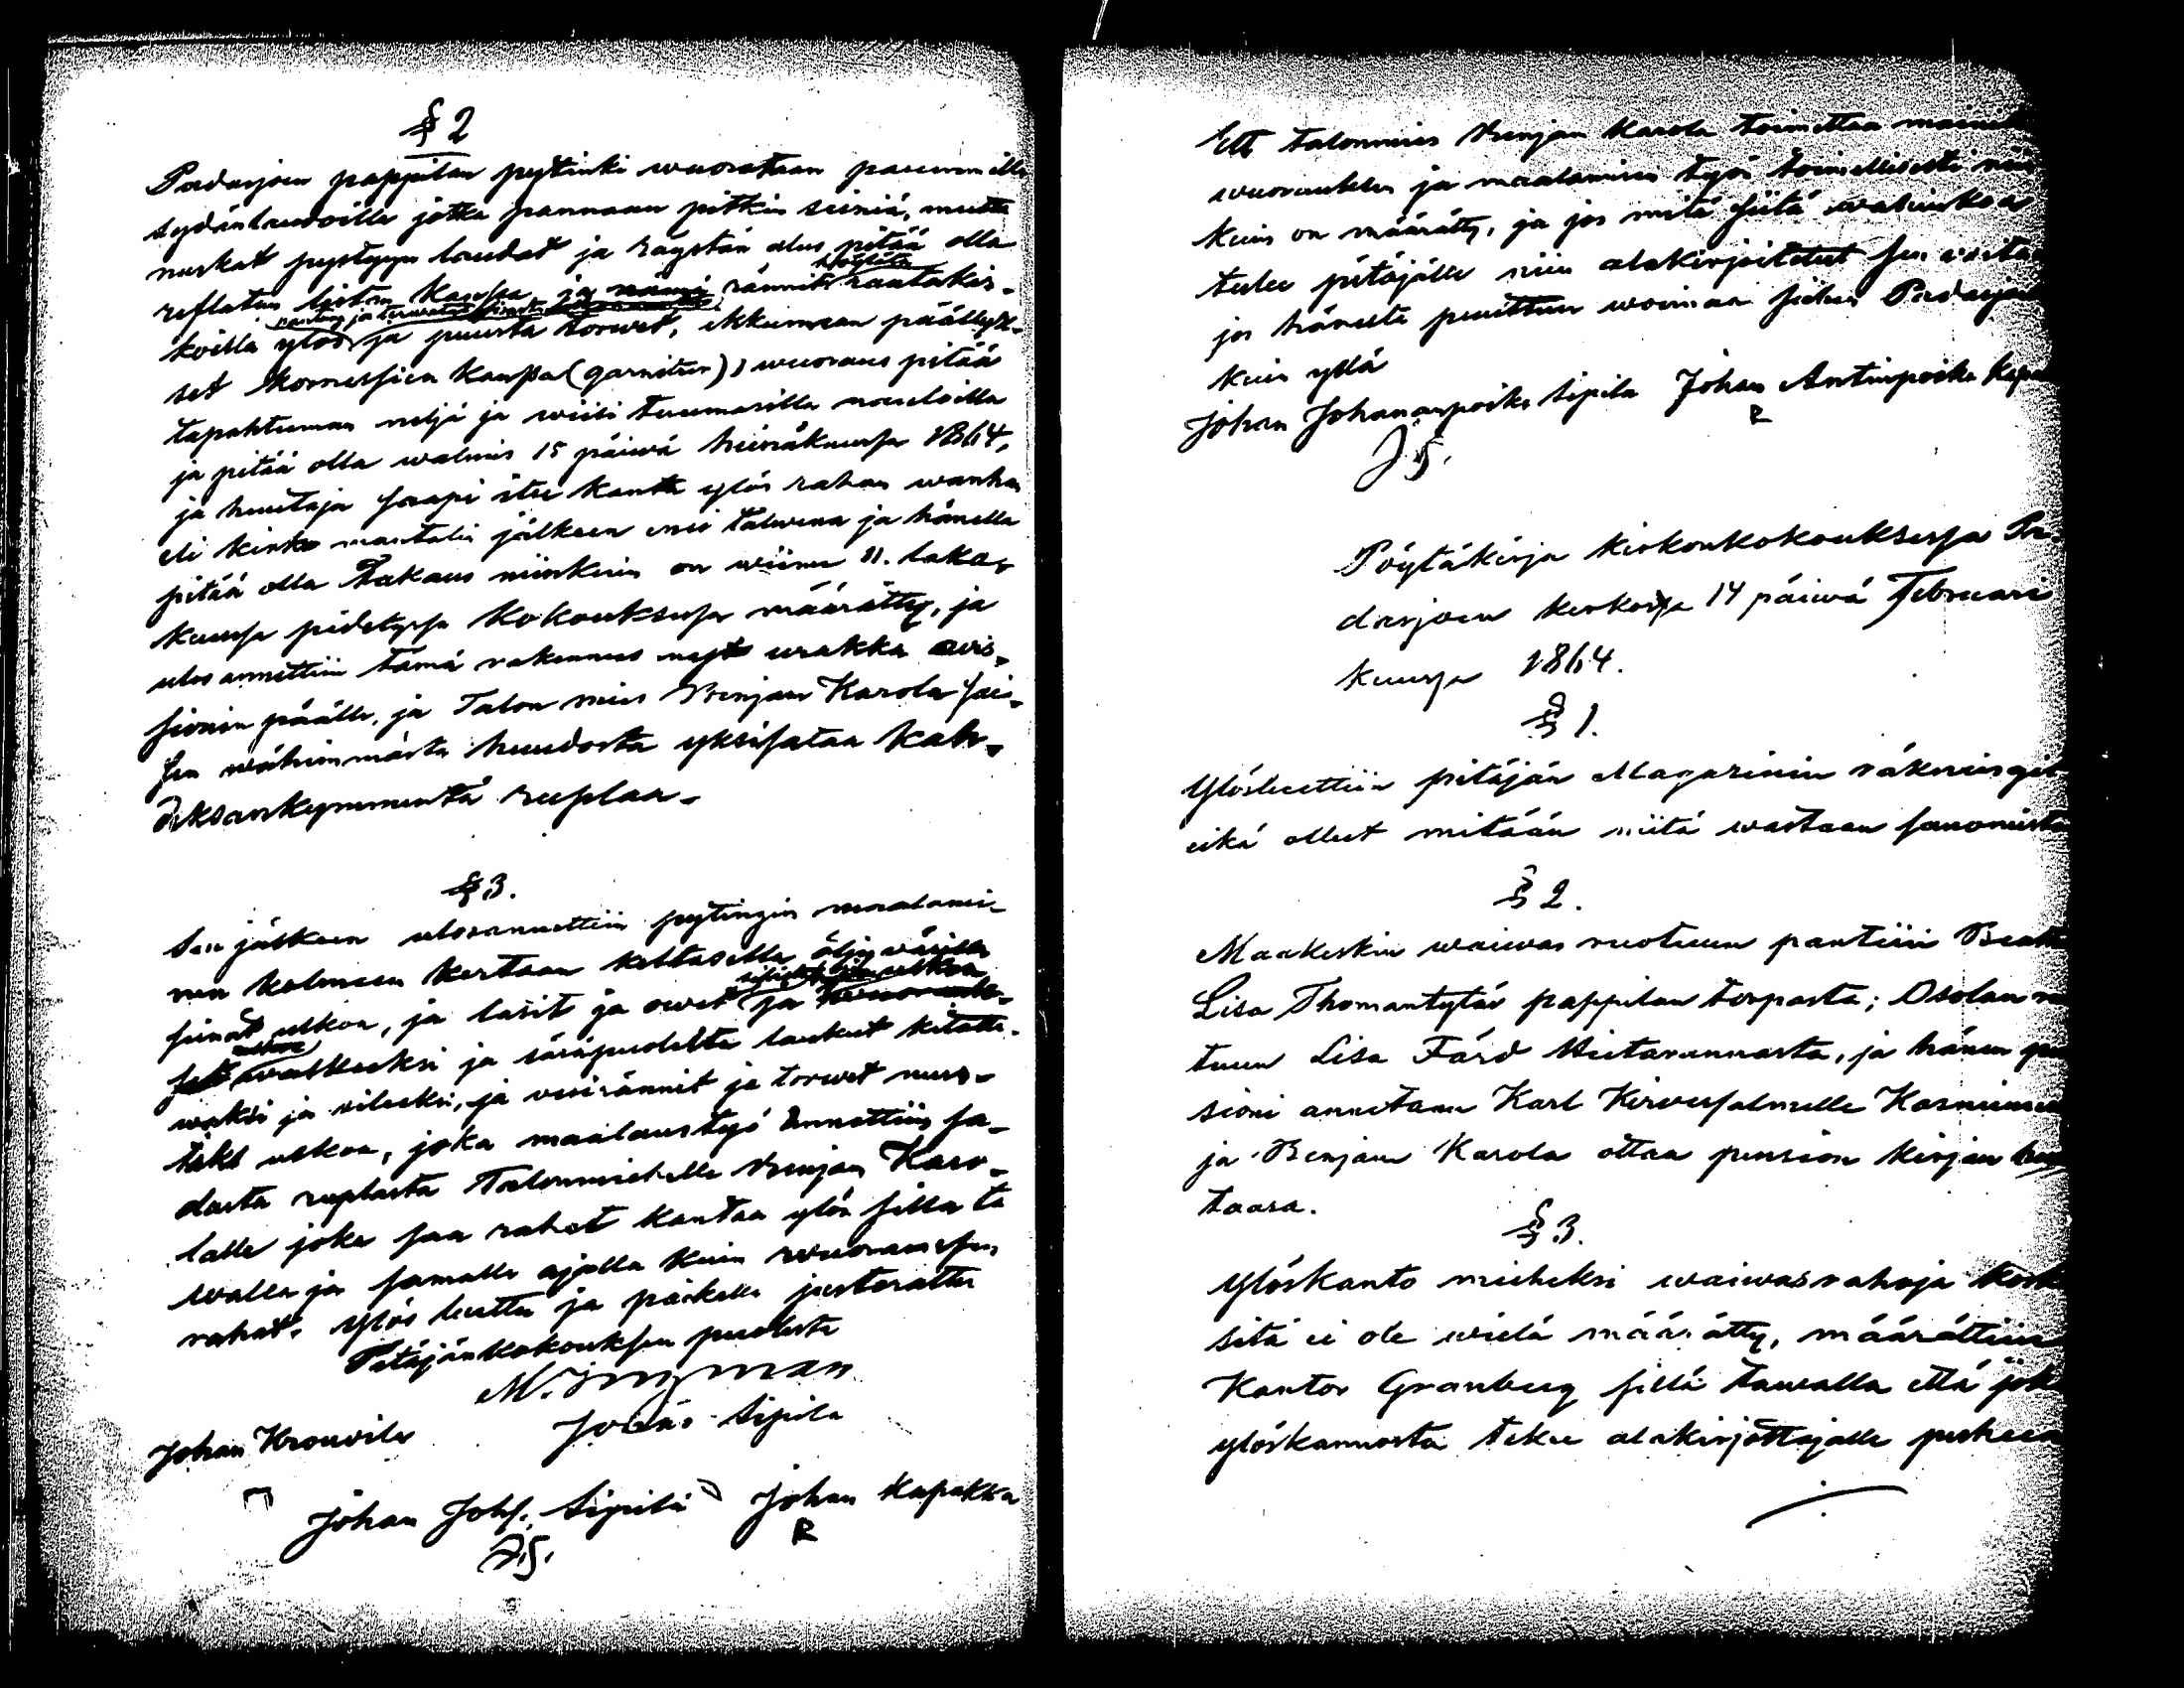 § 2
Padasjoen pappilan pytinki wuorataan paremmilla
sydänlaudoilla jotka pannaan pitkin seiniä, mutta
nurkat pystyyn laudat ja räystän alus pitää olla
reflatun listan kanssa, ja nämä rännit rautakis-
koilla ylös ja puusta torwet, ikkunaan päällyk-
set kornessien kanssa (garnitur), wuoraus pitää
tapahtuman neljä ja wiisi tuumasilla nauloilla
ja pitää olla walmis 15 päiwä heinäkuussa 1864,
ja huutaja saapi itse kantaa ylös rahan wanhan
eli kirkko mantalin jälkeen ensi talwena ja hänellä
pitää olla Takaus niinkuin on wiime 11. loka-
kuussa pidetyssä kokouksessa määrätty, ja
ulosannettiin tämä rakennus nyt urakka auk-
sionin päälle, ja Talon mies Benjam Karola sai-
sen wähimmästä huudosta yksisataa kah-
deksankymmentä ruplaa.
§ 3.
Sen jälkeen ulosannettiin pytingin maalami-
nen kolmeen kertaan keltasella öljy wärillä
seinät ulkoa, ja lasit ja owet ja
walkeaksi ja
waksi ja, ja wesirännit ja torwet mus-
taksi ulkoa, joka maalaustyö annettiin sa-
dasta ruplasta Talonmiehelle Benjam Karo-
lalle joka saa rahat kantaa ylös sillä ta
walla ja samalla ajalla kuin wuorauksen
rahat. Ylös luettu ja paikalla justerattu
Pitäjänkokouksen puolesta
M. Ingman
Johan Krouvila Jonas Sipila
Johan Johs. Sipilä Johan Kapakka
J.S. R
Että talonmies Benjam Karola toimittaa
wuorauksen ja maalamisen työn toimellisesti
kuin on määrätty, ja jos mitä siitä wahinkoa
tulee pitäjälle niin alakirjoitetut sen
jos häneltä puuttuu woimaa siihen Padasjoella
kuin yllä
Johan Johananpoika Sipila Johan Antinpoika
J.S. R
Pöytäkirja kirkonkokouksessa Pa-
dasjoen kirkossa 14 päiwä Februari
kuussa 1864.
§ 1.
Ylösluettiin pitäjän Magasinin räkningit
eikä ollut mitään niitä wastaan sanomista
§ 2.
Maakeskin waiwas ruotuun pantiin
Lisa Thomantytär pappilan torpasta; Osolan
tuun Lisa Färd Hietarannasta, ja hänen
sioni annetaan Karl Kirwessalmelle
ja Benjam Karola ottaa pension kirjan
taasa.
§ 3.
Ylöskanto mieheksi waiwasrahoja
sitä ei ole wielä määrätty, määrättiin
Kantor Granberg sillä tawalla että
ylöskannosta tekee alakirjottajalle